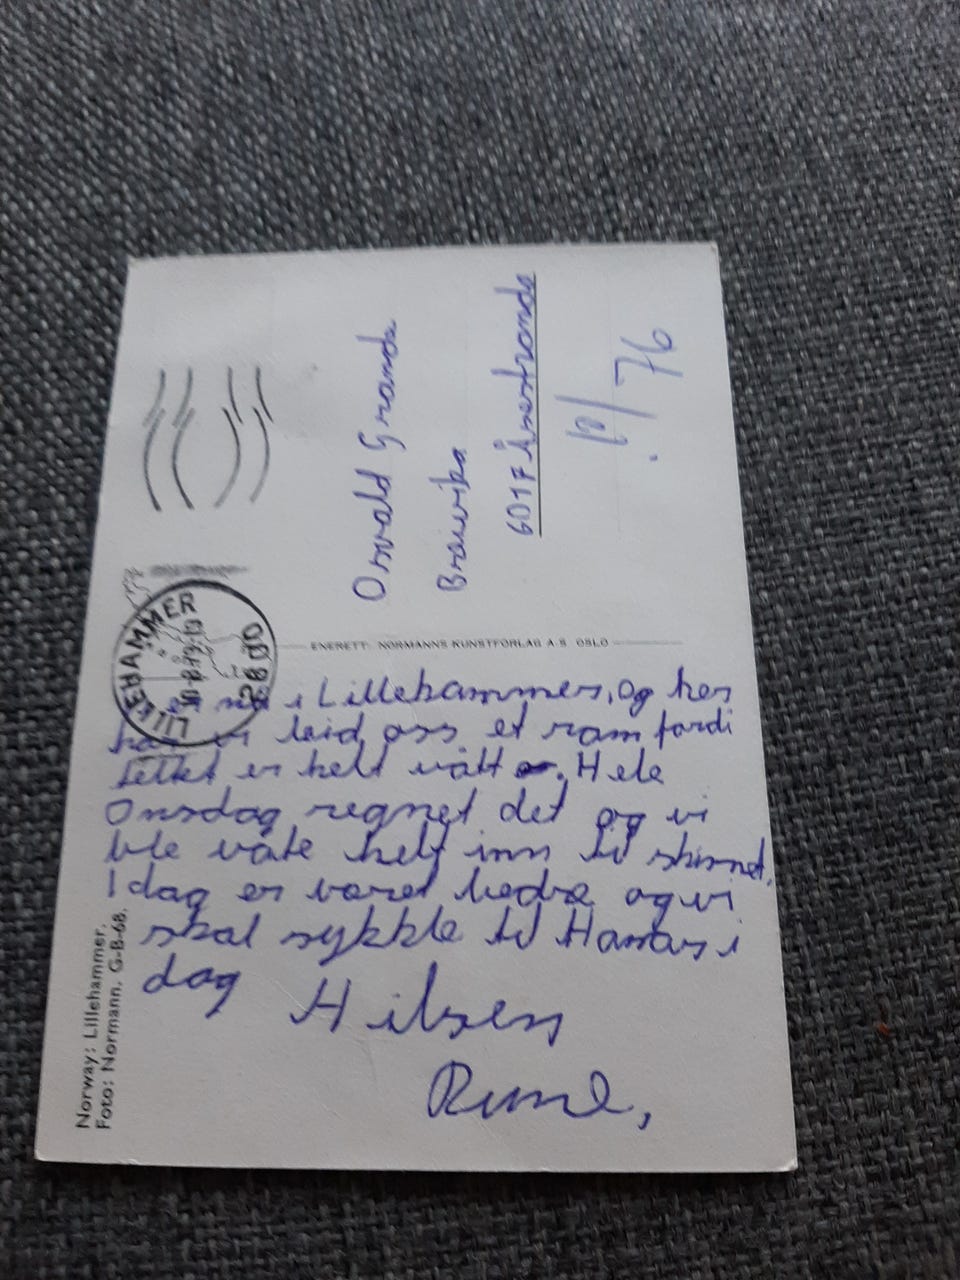 er nå i Lillehammer, og her
har vi leid oss et rom fordi
teltet er helt vått. Hele
Onsdag regnet det og vi
ble våte helt inn til skinnet.
I dag er været bedre og vi
skal sykkle til Hamar i
dag
Hilsen
Rune,
Osvald Grande
Brauvika
6017 Åsestranda
/76
LILLEHAMMER
2800
ENERETT: NORMANNS KUNSTFORLAG A.S. OSLO
Norway: Lillehammer.
Foto: Normann. G-B-68.